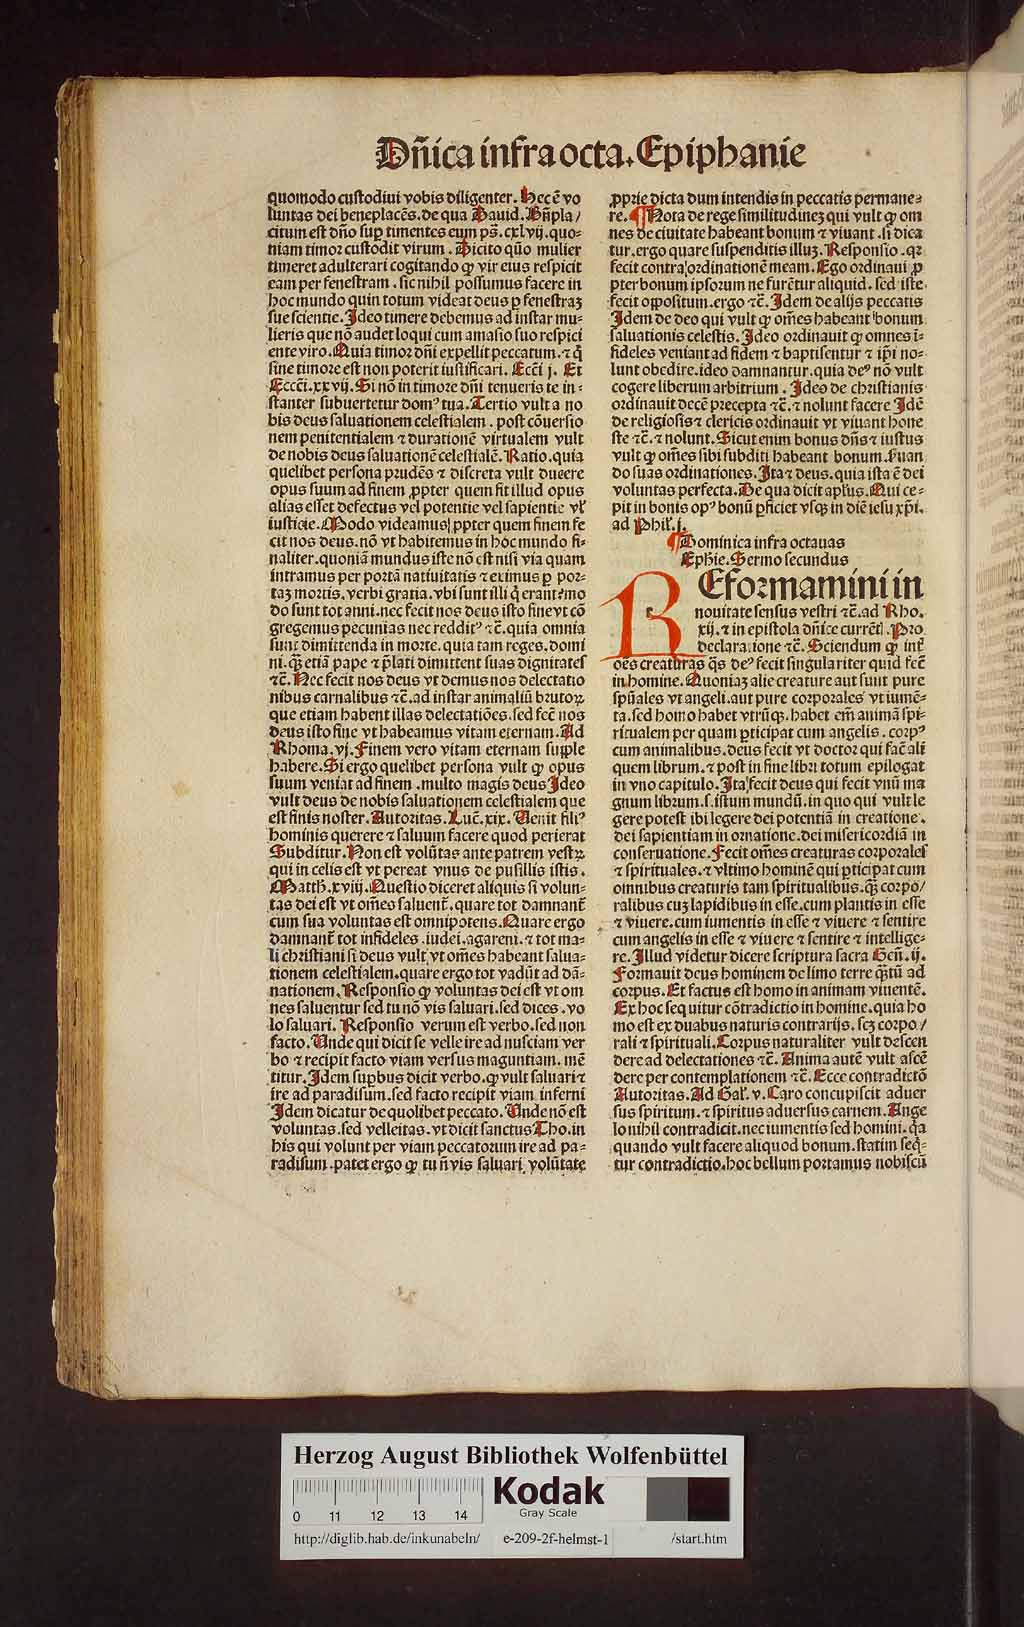 Dñica infra octa. Epiphanie
quomodo custodiui vobis diligenter. Hec ē vo
luntas dei beneplacēs. de qua Dauid. Bñpla/
citum est dño suꝑ timentes eum ps̄. cxlvij. quo-
niam timor custodit virum. Dicito quō mulier
timeret adulterari cogitando ꝙ vir eius respicit
eam per fenestram. sic nihil possumus facere in
hoc mundo quin totum videat deus ꝑ fenestraꝫ
sue scientie. Ideo timere debemus ad instar mu-
lieris que nō audet loqui cum amasio suo respici
ente viro. Quia timor dñi expellit peccatum. ⁊ q̄
sine timore est non poterit iustificari. Eccĩ j. Et
Eccĩ. xxvij. Si nō in timore dñi tenueris te in-
stanter subuertetur domꝰ tua. Tertio vult a no
bis deus saluationem celestialem. post cōuersio
nem penitentialem ⁊ durationē virtualem vult
de nobis deus saluationē celestialē. Ratio. quia
quelibet persona prudēs ⁊ discreta vult ducere
opus suum ad finem ꝓpter quem fit illud opus
alias esset defectus vel potentie vel sapientie vl̓
iusticie. Modo videamus ꝓpter quem finem fe
cit nos deus. nō vt habitemus in hoc mundo fi-
naliter. quoniā mundus iste nō est nisi via quam
intramus per portā natiuitatis ⁊ eximus ꝑ por-
taꝫ mortis. verbi gratia. vbi sunt illi q̇ erant mo
do sunt tot anni. nec fecit nos deus isto fine vt cō
gregemus pecunias nec redditꝰ ⁊c̄. quia omnia
sunt dimittenda in morte. quia tam reges. domi
ni. q̄ꝫ etiā pape ⁊ p̄lati dimittent suas dignitates
⁊c̄. Nec fecit nos deus vt demus nos delectatio
nibus carnalibus ⁊c̄. ad instar animaliū brutoꝝ
que etiam habent illas delectatiões. sed fecit nos
deus isto fine vt habeamus vitam eternam. Ad
Rhoma. vj. Finem vero vitam eternam supple
habere. Si ergo quelibet persona vult ꝙ opus
suum veniat ad finem. multo magis deus Ideo
vult deus de nobis saluationem celestialem que
est finis noster. Autoritas. Luē. xix. Venit filiꝰ
hominis querere ⁊ saluum facere quod perierat
Subditur. Non est volūtas ante patrem vestꝝ
qui in celis est vt pereat vnus de pusillis istis.
Matth. xviij. Questio diceret aliquis si volun-
tas dei est vt om̄es saluent̄. quare tot damnant̄
cum sua voluntas est omnipotens. Quare ergo
damnant̄ tot infideles. iudei. agareni. ⁊ tot ma-
li christiani si deus vult vt om̄es habeant salua-
tionem celestialem. quare ergo tot vadūt ad dā-
nationem. Responsio ꝙ voluntas dei est vt om
nes saluentur sed tu nō vis saluari. sed dices. vo
lo saluari. Responsio verum est verbo. sed non
facto. Unde qui dicit se velle ire ad nusciam ver
bo ⁊ recipit facto viam versus maguntiam. mē
titur. Idem suꝑbus dicit verbo. ꝙ vult saluari ⁊
ire ad paradisum. sed facto recipit viam inferni
Idem dicatur de quolibet peccato. Unde nō est
voluntas. sed velleitas. vt dicit sanctus Tho. in
his qui volunt per viam peccatorum ire ad pa-
radisum. patet ergo ꝙ tu ñ vis saluari volūtate
ꝓprie dicta dum intendis in peccatis permane-
re. ¶ Nota de rege similitudineꝫ qui vult ꝙ om
nes de ciuitate habeant bonum ⁊ viuant. si dica
tur. ergo quare suspenditis illuꝫ. Responsio. qꝛ
fecit contra ordinationē meam. Ego ordinaui ꝓ
pter bonum ipsorum ne furētur aliquid. sed iste
fecit oppositum. ergo ⁊c̄. Idem de alijs peccatis
Idem de deo qui vult ꝙ om̄es habeant bonum
saluationis celestis. Ideo ordinauit ꝙ omnes ī-
fideles veniant ad fidem ⁊ baptisentur ⁊ ip̄i no-
lunt obedire. ideo damnantur. quia deꝰ nō vult
cogere liberum arbitrium. Ideo de christianis
ordinauit decē precepta ⁊c̄. ⁊ nolunt facere Idē
de religiosis ⁊ clericis ordinauit vt viuant hone
ste ⁊c̄. ⁊ nolunt. Sicut enim bonus dñs ⁊ iustus
vult ꝙ om̄es sibi subditi habeant bonum. fuan
do suas ordinationes. Ita ⁊ deus. quia ista ē dei
voluntas perfecta. De qua dicit aplꝰus. Qui ce-
pit in bonis opꝰ bonū ꝑficiet vsqꝫ in diē iesu xp̄i.
ad Phil̓. j.
¶ Dominica infra octauas
Ephie. Sermo secundus
REformamini in
nouitate sensus vestri ⁊c̄. ad Rho.
xij. ⁊ in epistola dñice currētꝭ. Pro
declaratione ⁊c̄. Sciendum ꝙ int̓
oēs creaturas q̄s deꝰ fecit singulariter quid fec̄
in homine. Quoniaꝫ alie creature aut sunt pure
sp̄uales vt angeli. aut pure corporales vt iumē-
ta. sed homo habet vtrūqꝫ. habet em̄ animā spi-
ritualem per quam ꝑticipat cum angelis. corpꝰ
cum animalibus. deus fecit vt doctor qui fac̄ ali
quem librum. ⁊ post in fine libri totum epilogat
in vno capitulo. Ita fecit deus qui fecit vnū ma
gnum librum. s. istum mundū. in quo qui vult le
gere potest ibi legere dei potentiā in creatione.
dei sapientiam in ornatione. dei misericordiā in
conseruatione. Fecit om̄es creaturas corporales
⁊ spirituales. ⁊ vltimo hominē qui ꝑticipat cum
omnibus creaturis tam spiritualibus. q̄ꝫ corpo/
ralibus cuꝫ lapidibus in esse. cum plantis in esse
⁊ viuere. cum iumentis in esse ⁊ viuere ⁊ sentire
cum angelis in esse ⁊ viuere ⁊ sentire ⁊ intellige-
re. Illud videtur dicere scriptura sacra Geñ. ij.
Formauit deus hominem de limo terre q̄ꝫtū ad
corpus. Et factus est homo in animam viuentē.
Ex hoc sequitur cōtradictio in homine. quia ho
mo est ex duabus naturis contrarijs. scꝫ corpo/
rali ⁊ spirituali. Corpus naturaliter vult descen
dere ad delectationes ⁊c̄. Anima autē vult ascē
dere per contemplationem ⁊c̄. Ecce contradictō
Autoritas. Ad Gal̓. v. Caro concupiscit aduer
sus spiritum. ⁊ spiritus aduersus carnem. Ange
lo nihil contradicit. nec iumentis sed homini. q̇a
quando vult facere aliquod bonum. statim seq̇-
tur contradictio. hoc bellum portamus nobiscū
Herzog August Bibliothek Wolfenbüttel
Kodak
Gray Scale
0 11 12 13 14
http://diglib.hab.de/inkunabeln/ e-209-2f-helmst-1 /start.htm